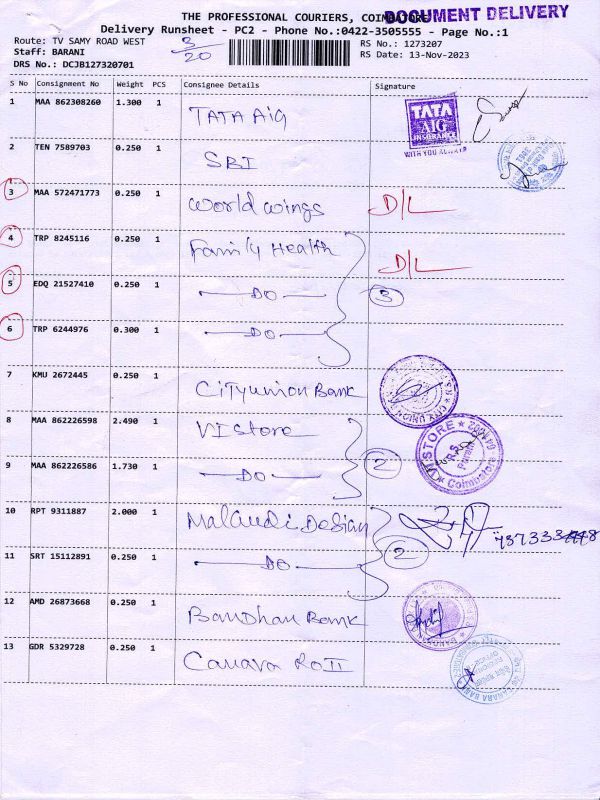 THE PROFESSIONAL COURIERS, COIMBATORE
DOCUMENT DELIVERY
Delivery Runsheet - PC2 - Phone No.:0422-3505555 - Page No.:1
Route: TV SAMY ROAD WEST 3/20 RS No.: 1273207
Staff: BARANI RS Date: 13-Nov-2023
DRS No.: DCJB127320701
S No Consignment No Weight PCS Consignee Details Signature
1 MAA 862308260 1.300 1 TATA AIG
TATA
AIG
INSURANCE
WITH YOU ALWAYS
2 TEN 7589703 0.250 1 SBI
3 MAA 572471773 0.250 1 World wings D/L
4 TRP 8245116 0.250 1 Family Health D/L
5 EDQ 21527410 0.250 1 DO 3
6 TRP 6244976 0.300 1 DO
7 KMU 2672445 0.250 1 City union Bank
8 MAA 862226598 2.490 1 VI store
VI STORE
R.S. Puram
Coimbatore
9 MAA 862226586 1.730 1 DO 2
10 RPT 9311887 2.000 1 Malaudi Design
11 SRT 15112891 0.250 1 DO 2
12 AMD 26873668 0.250 1 Bandhan Bank
13 GDR 5329728 0.250 1 Canara Ro II